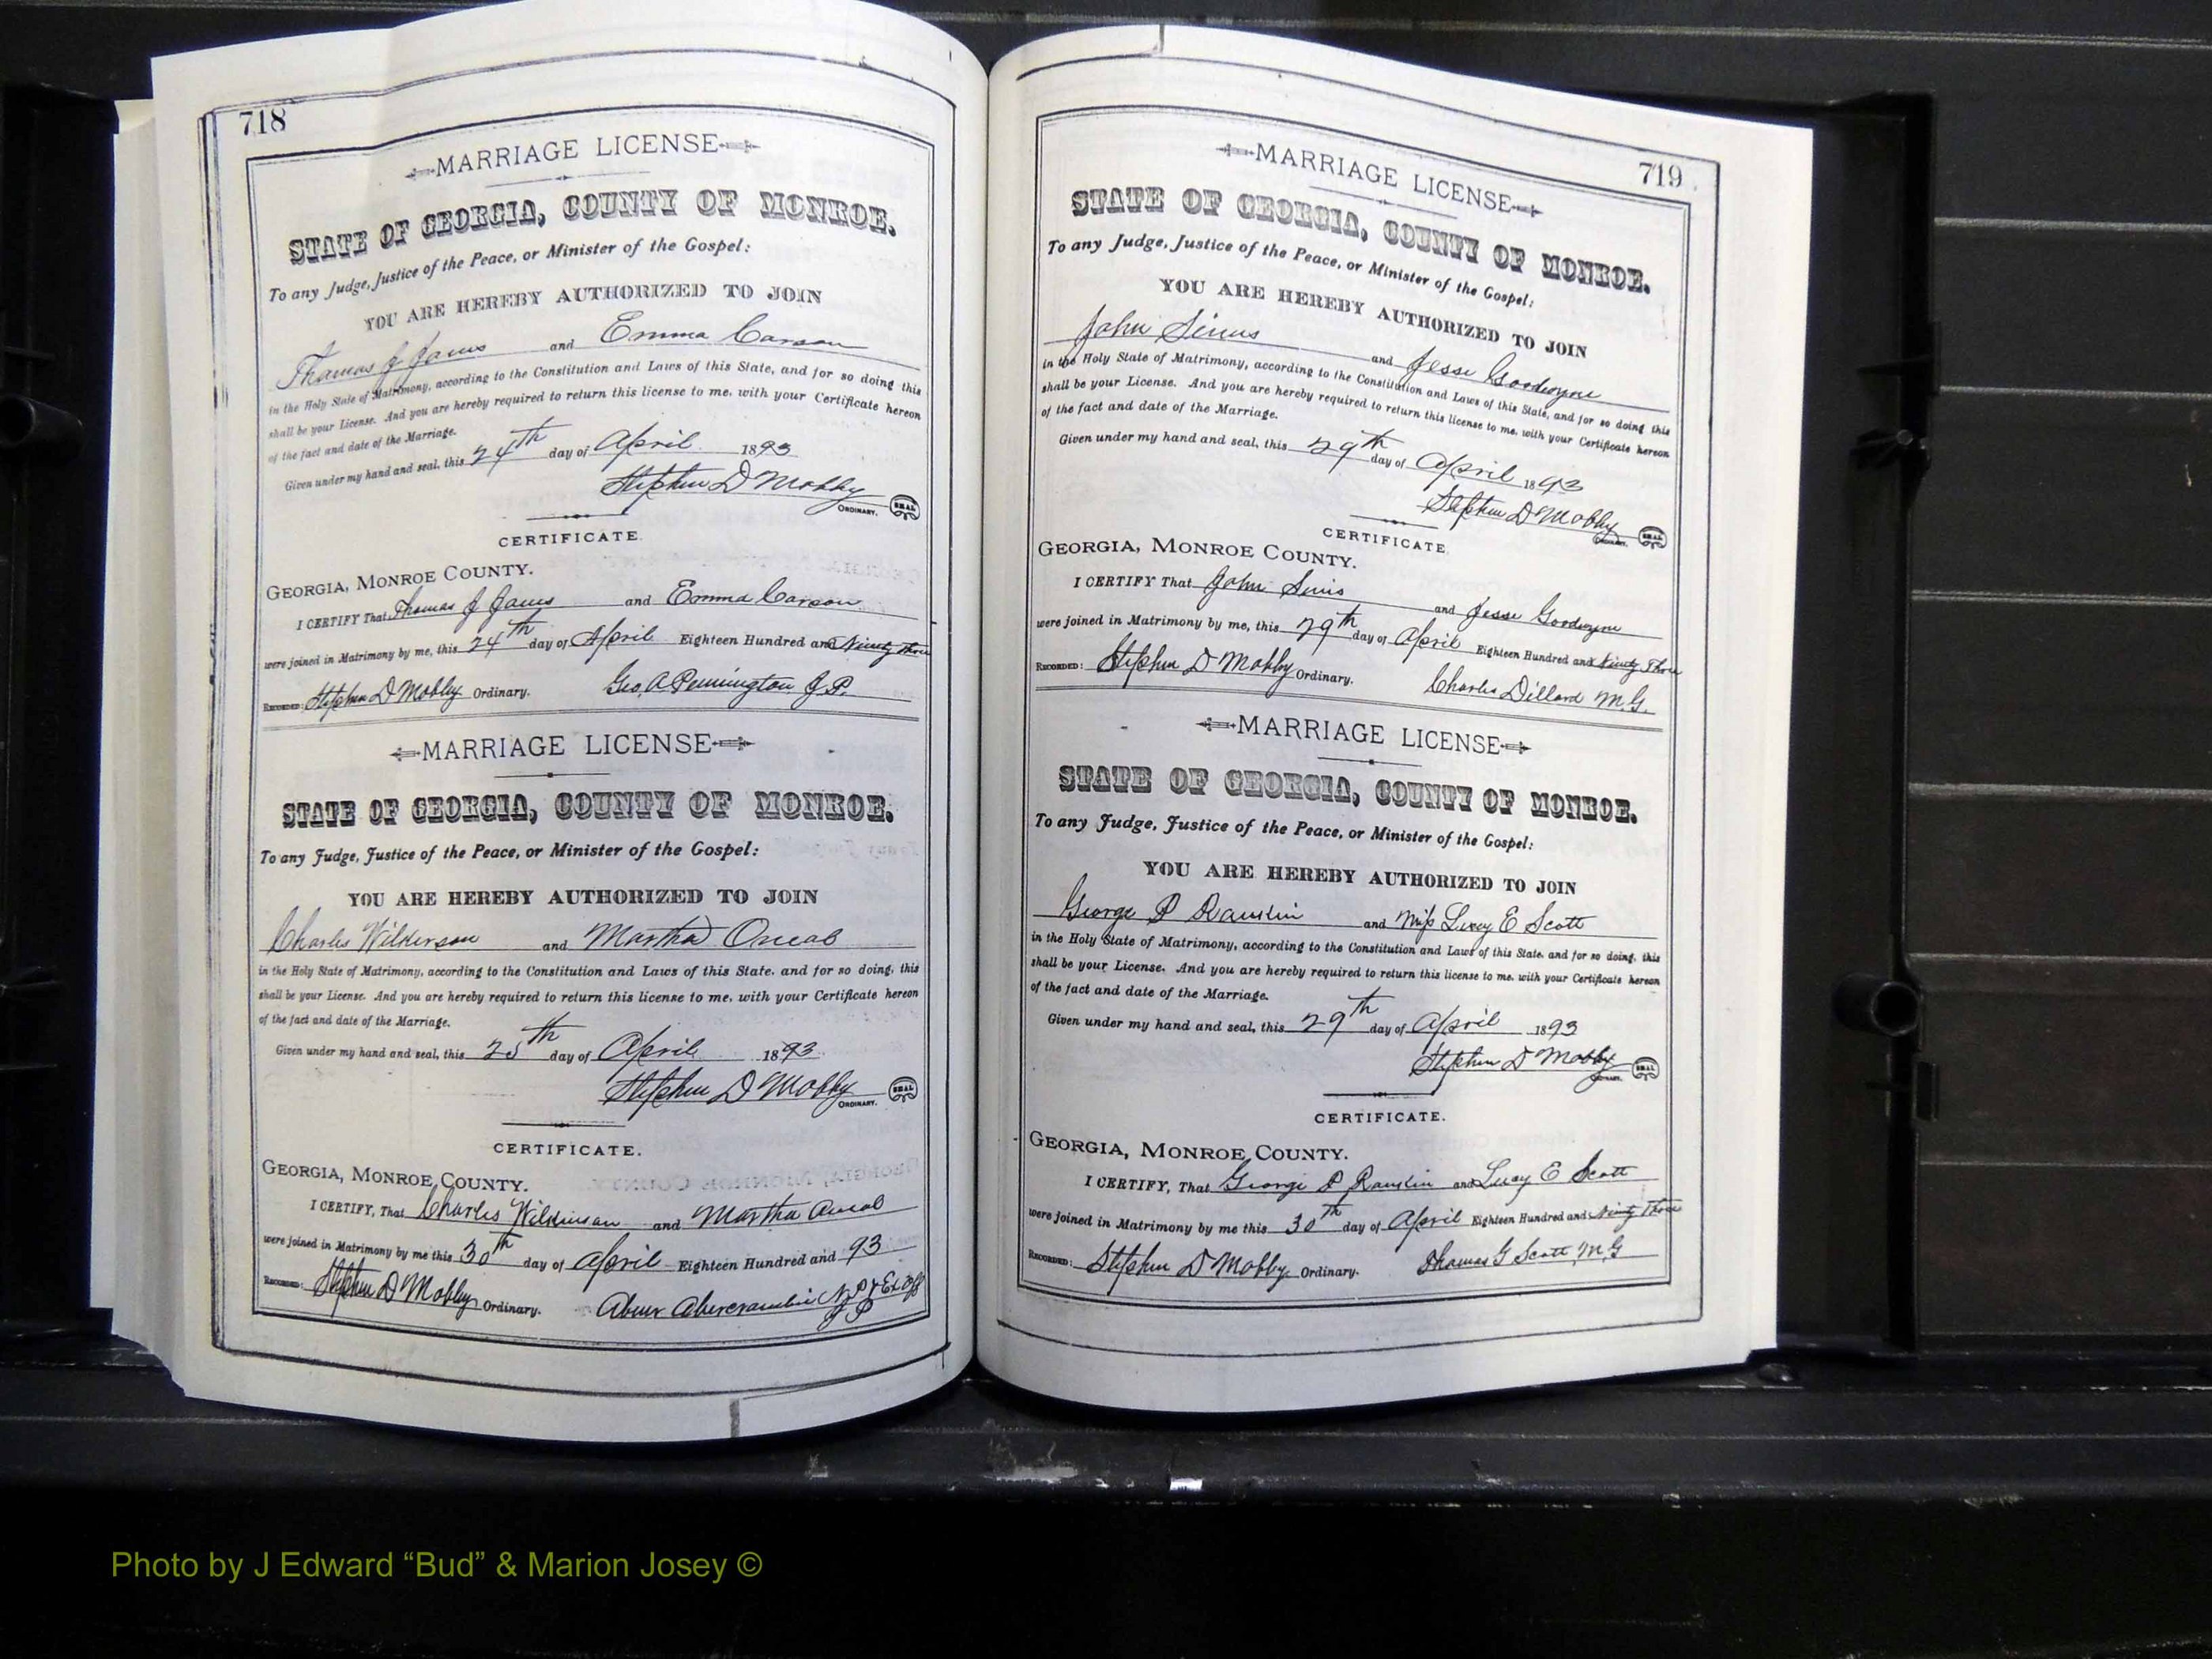 718
MARRIAGE LICENSE
STATE OF GEORGIA, COUNTY OF MONROE.
To any Judge, Justice of the Peace, or Minister of the Gospel:
YOU ARE HEREBY AUTHORIZED TO JOIN
Thomas J and Emma Carson
in the Holy State of Matrimony, according to the Constitution and Laws of this State, and for so doing this
shall be your License. And you are hereby required to return this license to me, with your Certificate hereon
of the fact and date of the Marriage.
Given under my hand and seal, this 24th day of April 1893
Stephen D Mobley
ORDINARY. SEAL
CERTIFICATE.
GEORGIA, MONROE COUNTY.
I CERTIFY That Thomas J and Emma Carson
were joined in Matrimony by me, this 24th day of April Eighteen Hundred and Ninety Three
RECORDED: Stephen D Mobley Ordinary. Geo. A Pennington J. P.
MARRIAGE LICENSE
STATE OF GEORGIA, COUNTY OF MONROE.
To any Judge, Justice of the Peace, or Minister of the Gospel:
YOU ARE HEREBY AUTHORIZED TO JOIN
Charles Wilkerson and Martha Oneal
in the Holy State of Matrimony, according to the Constitution and Laws of this State, and for so doing, this
shall be your License. And you are hereby required to return this license to me, with your Certificate hereon
of the fact and date of the Marriage.
Given under my hand and seal, this 25th day of April 1893
Stephen D Mobley
ORDINARY. SEAL
CERTIFICATE.
GEORGIA, MONROE COUNTY.
I CERTIFY, That Charles Wilkinson and Martha Oneal
were joined in Matrimony by me this 30th day of April Eighteen Hundred and 93
RECORDED: Stephen D Mobley Ordinary. Abner Abercrombie N P & Ex Off
J P
719
MARRIAGE LICENSE
STATE OF GEORGIA, COUNTY OF MONROE.
To any Judge, Justice of the Peace, or Minister of the Gospel:
YOU ARE HEREBY AUTHORIZED TO JOIN
John Sims and Jesse Goodwyne
in the Holy State of Matrimony, according to the Constitution and Laws of this State, and for so doing this
shall be your License. And you are hereby required to return this license to me, with your Certificate hereon
of the fact and date of the Marriage.
Given under my hand and seal, this 29th day of April 1893
Stephen D Mobley
ORDINARY. SEAL
CERTIFICATE.
GEORGIA, MONROE COUNTY.
I CERTIFY That John Sims and Jesse Goodwyne
were joined in Matrimony by me, this 29th day of April Eighteen Hundred and Ninety Three
RECORDED: Stephen D Mobley Ordinary. Charles Dillard M. G.
MARRIAGE LICENSE
STATE OF GEORGIA, COUNTY OF MONROE.
To any Judge, Justice of the Peace, or Minister of the Gospel:
YOU ARE HEREBY AUTHORIZED TO JOIN
George P and Miss Lucy E Scott
in the Holy State of Matrimony, according to the Constitution and Laws of this State, and for so doing, this
shall be your License. And you are hereby required to return this license to me, with your Certificate hereon
of the fact and date of the Marriage.
Given under my hand and seal, this 29th day of April 1893
Stephen D Mobley
ORDINARY. SEAL
CERTIFICATE.
GEORGIA, MONROE COUNTY.
I CERTIFY, That George P and Lucy E Scott
were joined in Matrimony by me this 30th day of April Eighteen Hundred and Ninety Three
RECORDED: Stephen D Mobley Ordinary. Thomas G Scott, M. G
Photo by J Edward “Bud” & Marion Josey ©